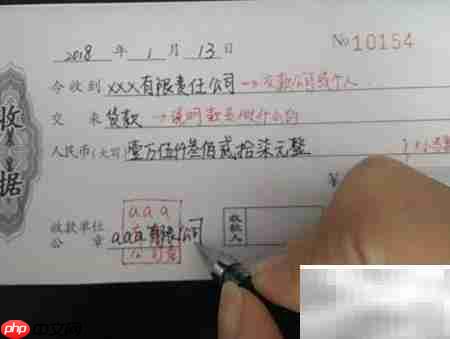 2018 年 1 月 13 日
No 10154
今收到 XXX有限责任公司 →交款公司或个人
交来 货款 →说明款是做什么的
人民币(大写) 壹万伍仟叁佰贰拾柒元整
¥
收据
收款单位
公章
aaa
aaa有限公司
收款人
php